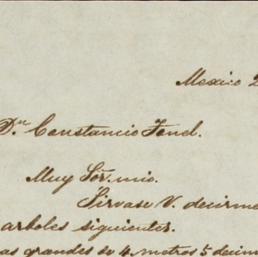 Mexico 2
Dn Constancio Fenel.
Muy Sōr. mio.
Sirvase V. decirme
arboles siguientes.
as grandes de 4 metros 5 decim